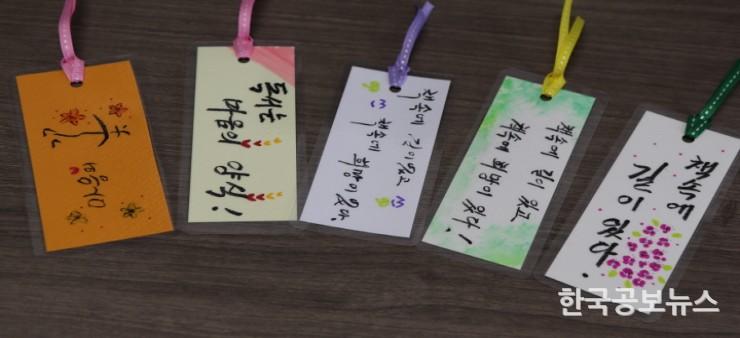 독서는
마음의 양식!
책속에 길이있고
책속에 희망이 있다.
책속에 길이 있고
책속에 희망이 있다!
책속에
길이 있다.
한국공보뉴스